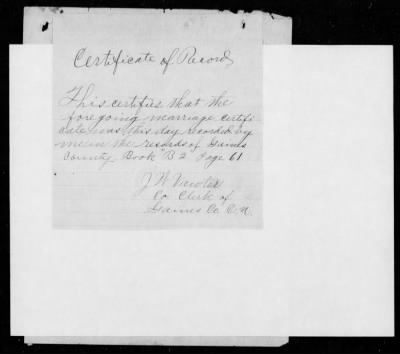 Certificate of Record
This certifies that the
fore going marriage certifi
cate was this day recorded by
me in the records of Gaines
County Book B 2 Page 61
J W
Co Clerk of
Gaines Co